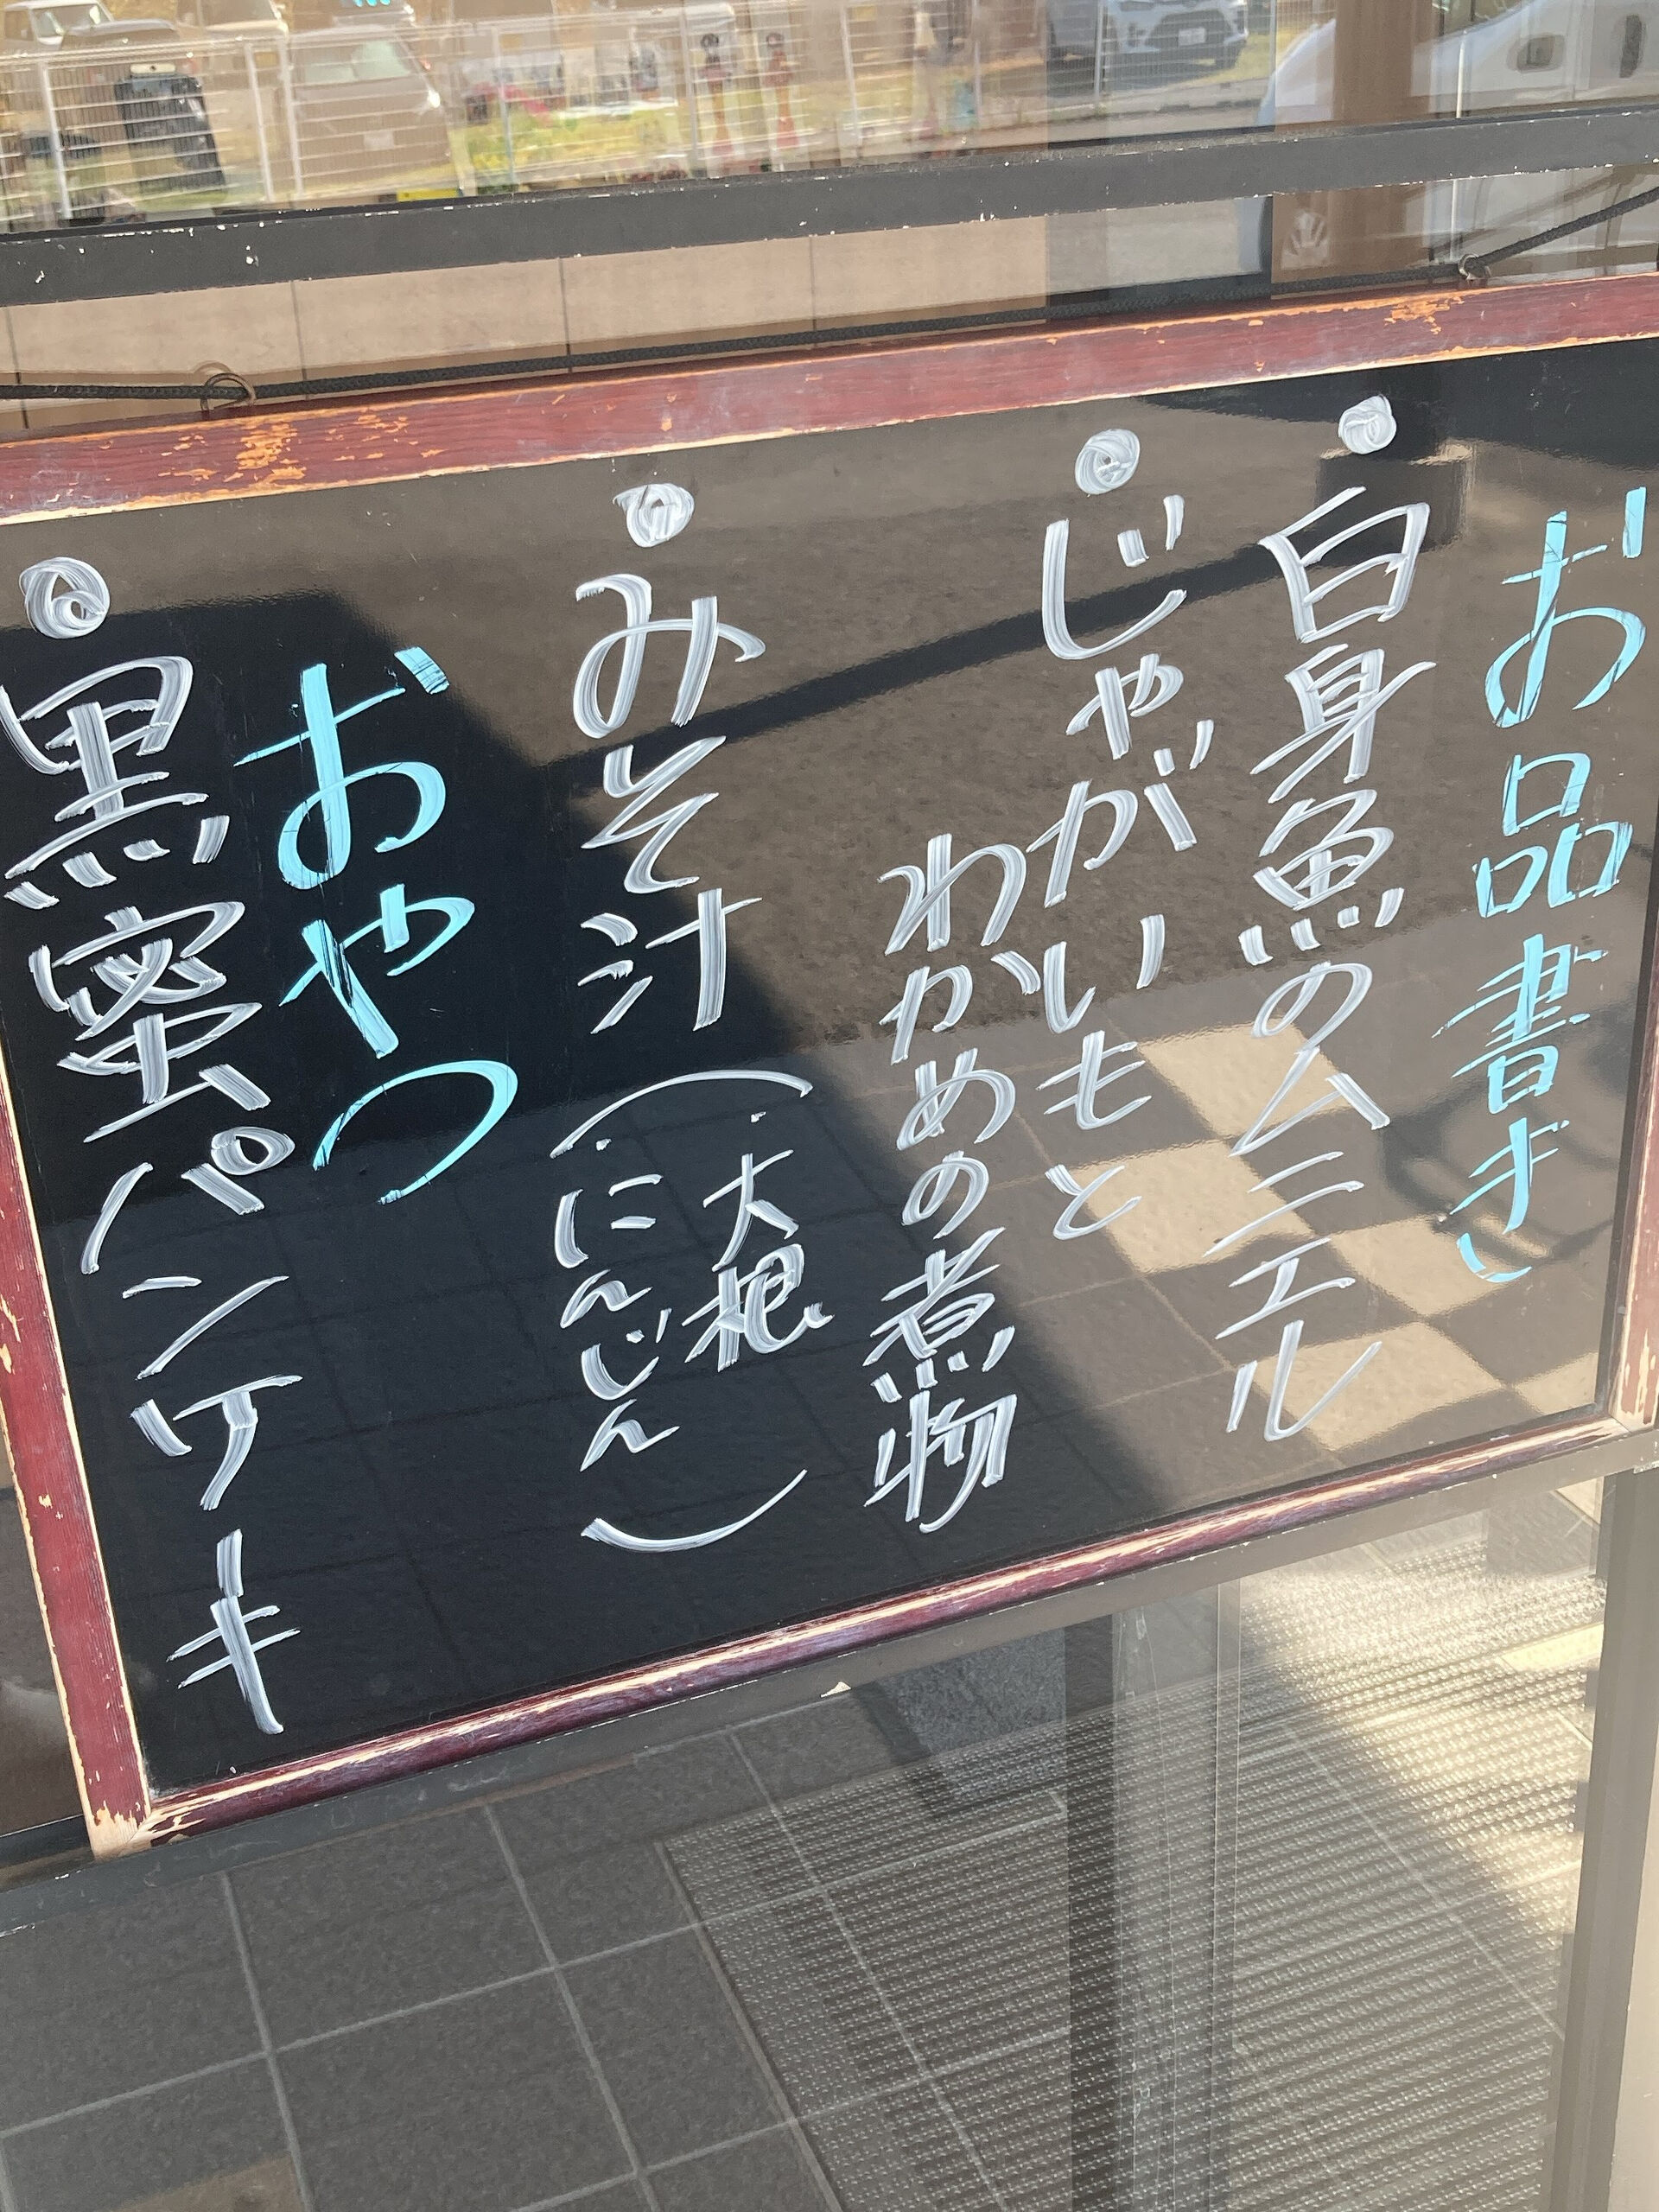 お品書き
白身魚のムニエル
じゃがいもと
わかめの煮物
みそ汁(大根
にんじん)
おやつ
黒蜜パンケーキ